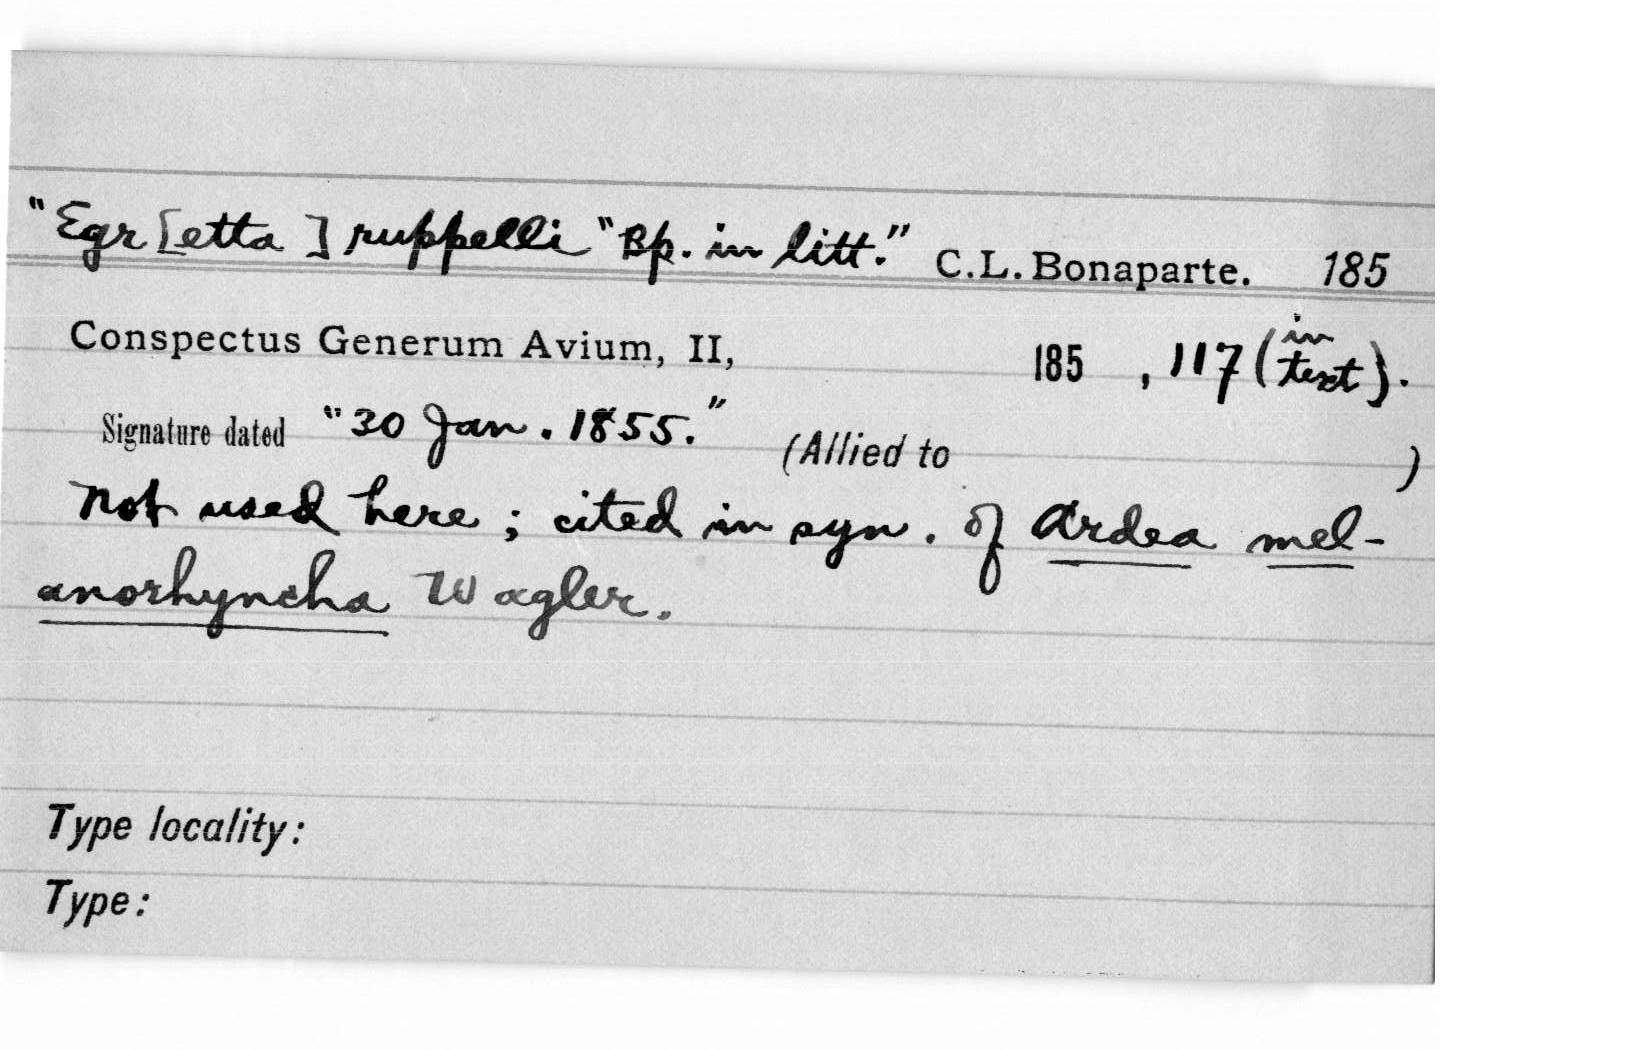 "Egr[etta] ruppelli "Bp. in litt." C.L. Bonaparte. 185
Conspectus Generum Avium, II, 185 , 117 (in text).
Signature dated "30 Jan. 1855." (Allied to )
Not used here; cited in syn. of Ardea mel-
anorhyncha Wagler.
Type locality:
Type: